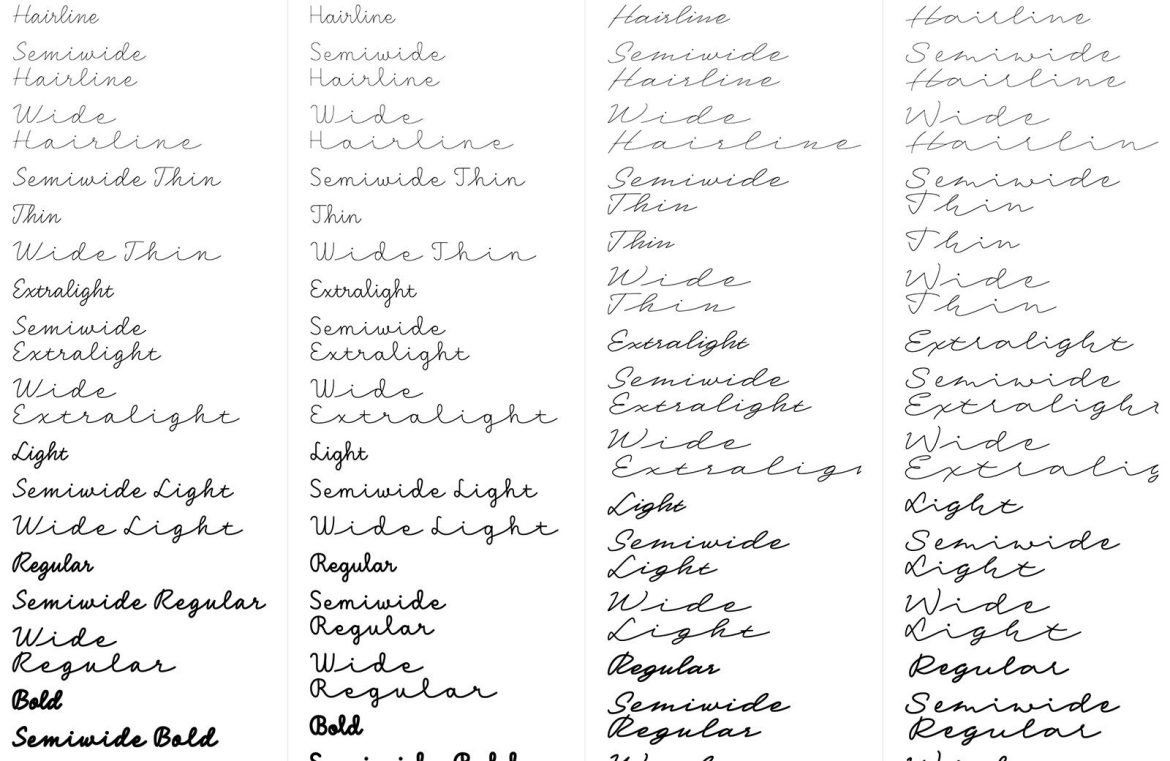 Hairline
Semiwide
Hairline
Wide
Hairline
Semiwide Thin
Thin
Wide Thin
Extralight
Semiwide
Extralight
Wide
Extralight
Light
Semiwide Light
Wide Light
Regular
Semiwide Regular
Wide
Regular
Bold
Semiwide Bold
Hairline
Semiwide
Hairline
Wide
Hairline
Semiwide Thin
Thin
Wide Thin
Extralight
Semiwide
Extralight
Wide
Extralight
Light
Semiwide Light
Wide Light
Regular
Semiwide
Regular
Wide
Regular
Bold
Semiwide Bold
Hairline
Semiwide
Hairline
Wide
Hairline
Semiwide
Thin
Thin
Wide
Thin
Extralight
Semiwide
Extralight
Wide
Extralig
Light
Semiwide
Light
Wide
Light
Regular
Semiwide
Regular
Wide
Hairline
Semiwide
Hairline
Wide
Hairlin
Semiwide
Thin
Thin
Wide
Thin
Extralight
Semiwide
Extraligh
Wide
Extralig
Light
Semiwide
Light
Wide
Light
Regular
Semiwide
Regular
Wide